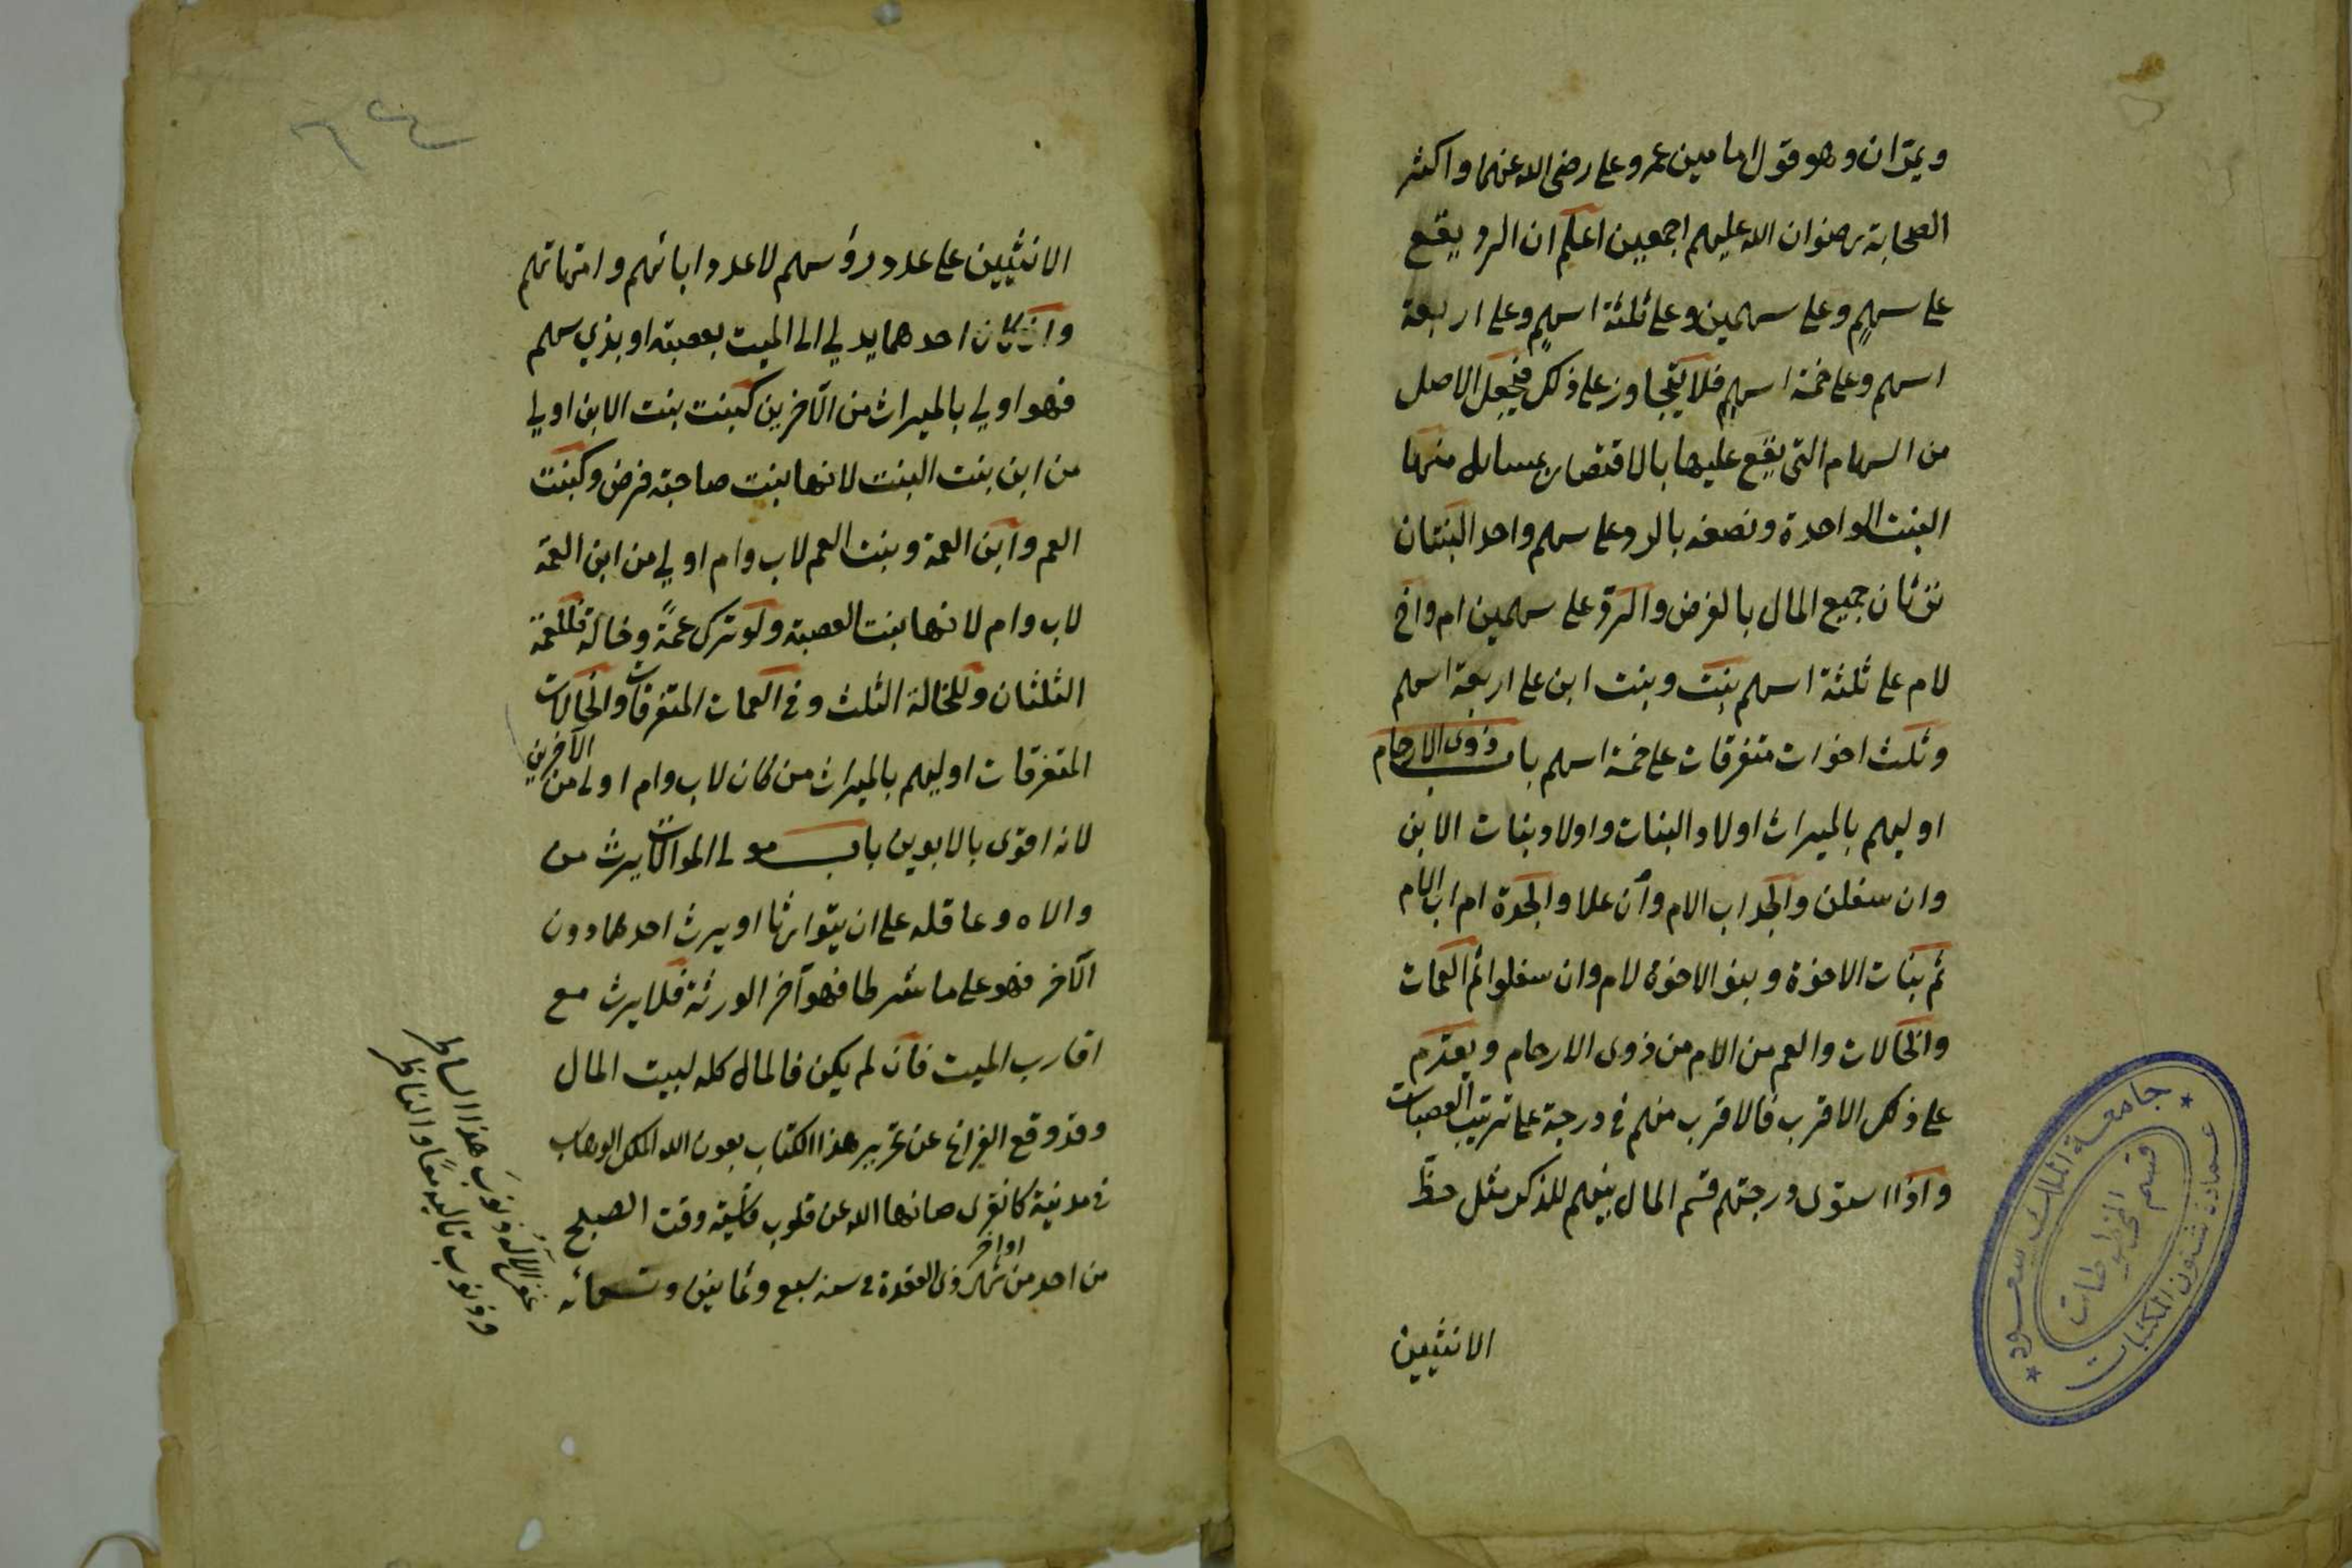 ويحرزان وهو قول امامين عمر وعلى رضى الله عنهما واكثر
الصحابة رضوان الله عليهم اجمعين اعلم ان الرد يقع
على سهم وعلى سهمين وعلى ثلثة اسهم وعلى اربعة
اسهم وعلى خمسة اسهم فلا يتجاوز على ذلك فيجعل الاصل
من السهام التى يقع عليها بالاقتصار مسائل منها
البنت الواحدة ونصفه بالرد على سهم واحد البنتان
ترثان جميع المال بالفرض والرد على سهمين ام واخ
لام على ثلثة اسهم بنت وبنت ابن على اربعة اسهم
وثلث اخوات متفرقات على خمسة اسهم باب ذوى الارحام
اوليهم بالميراث اولاد البنات واولاد بنات الابن
وان سفلن والجد اب الام وان علا والجدة ام اب الام
ثم بنات الاخوة وبنو الاخوة لام وان سفلوا ثم العمات
والخالات والعم من الام من ذوى الارحام ويقدم
على ذلك الاقرب فالاقرب منهم فى درجة على ترتيب العصبات
واذا استوى درجتهم قسم المال بينهم للذكر مثل حظ
الانثيين
جامعة الملك سعود
عمادة شئون المكتبات
قسم المخطوطات
الانثيين على عدد رؤسهم لا عدد ابائهم وامهاتهم
وان كان احدهما يدلي الى الميت بعصبة او بذي سهم
فهو اولي بالميراث من الآخرين كبنت بنت الابن اولي
من ابن بنت البنت لانها بنت صاحبة فرض وكبنت
العم وابن العمة وبنت العم لاب وام اولي من ابن العمة
لاب وام لانها بنت العصبة ولو ترك عمةً وخالة فللعمة
الثلثان وللخالة الثلث وفى العمات المتفرقات والخالات
المتفرقات اوليهم بالميراث من كان لاب وام اولى من الآخرين
لانه اقوى بالابوين باب مولى الموالات يرث من
والاه وعاقله على ان يتوارثا او يرث احدهما دون
الآخر فهو على ما شرطا فهو آخر الورثة فلا يرث مع
اقارب الميت فان لم يكن فالمال كله لبيت المال
وقد وقع الفراغ عن تحرير هذا الكتاب بعون الله الملك الوهاب
فى مدينة كانغرى صانها الله عن قلوب قاسية وقت الصبح
من احد من اواخر شهر ذى القعدة فى سنه سبع وثمانين وتسعمائه
غفر الآله ذنوبَ هذا الساطر
وذنوب تاليه معًا والناظر